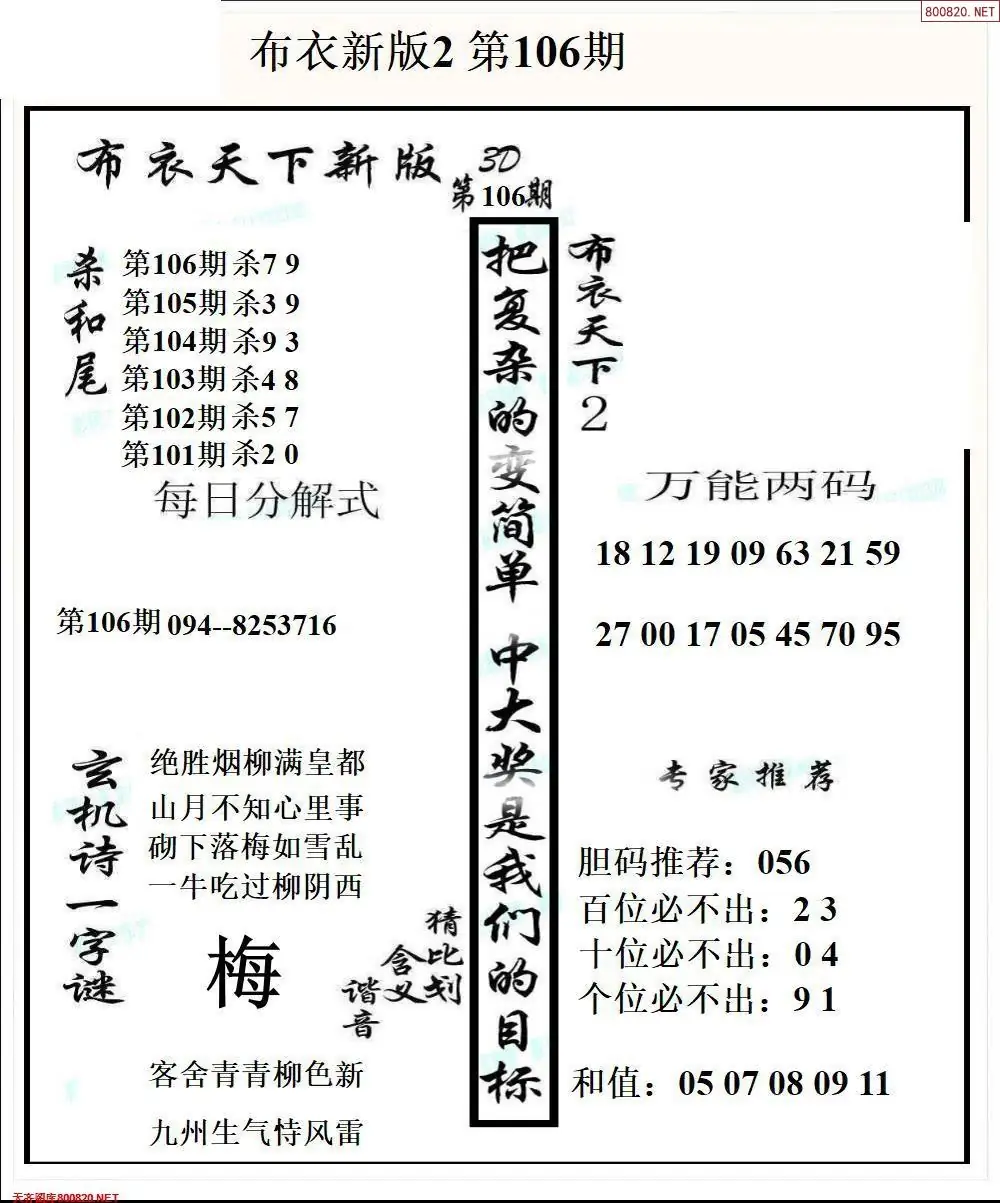 800820.NET
布衣新版2 第106期
布衣天下新版 3D
第106期
杀和尾
第106期杀7 9
第105期杀3 9
第104期杀9 3
第103期杀4 8
第102期杀5 7
第101期杀2 0
每日分解式
第106期 094--8253716
玄机诗一字谜
绝胜烟柳满皇都
山月不知心里事
砌下落梅如雪乱
一牛吃过柳阴西
梅
猜比划
含义
谐音
客舍青青柳色新
九州生气恃风雷
把复杂的变简单 中大奖是我们的目标
布衣天下2
万能两码
18 12 19 09 63 21 59
27 00 17 05 45 70 95
专家推荐
胆码推荐：056
百位必不出：2 3
十位必不出：0 4
个位必不出：9 1
和值：05 07 08 09 11
天齐图库800820.NET